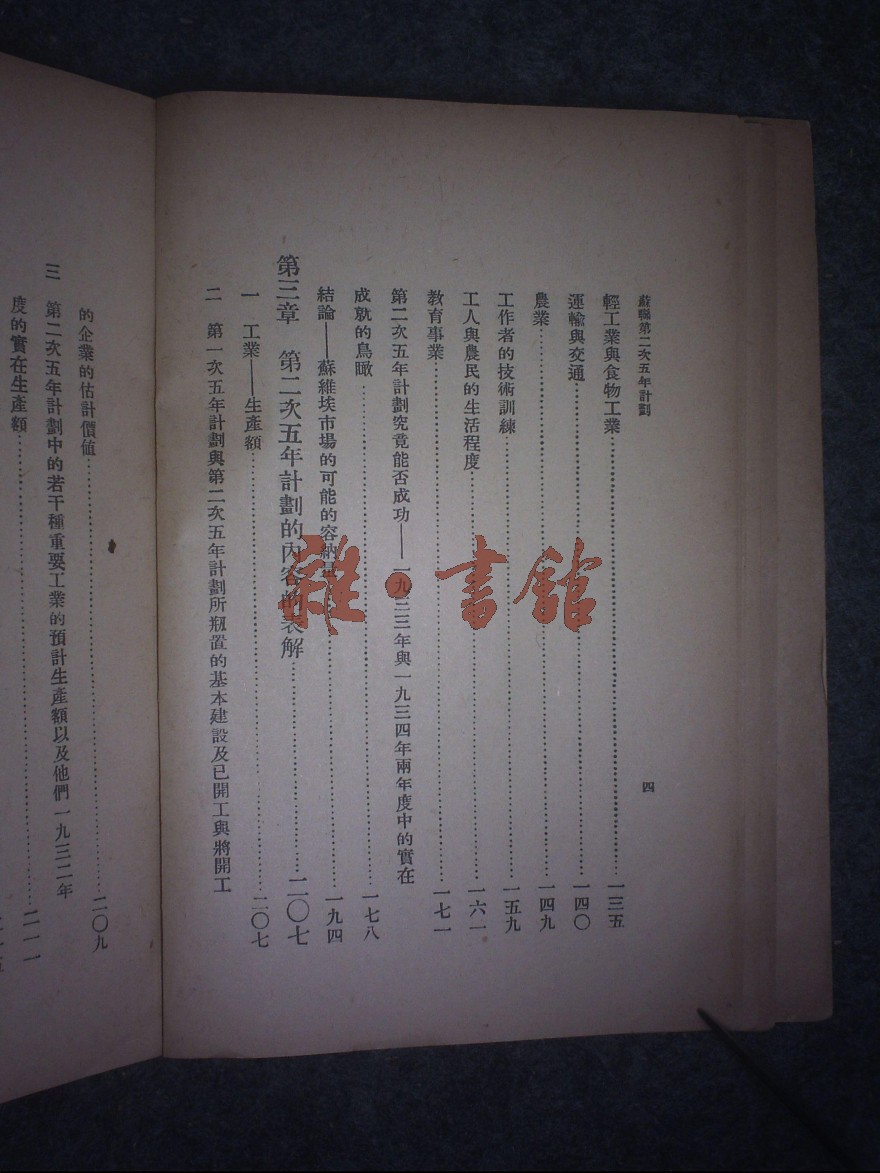 蘇聯第二次五年計劃
四
輕工業與食物工業……一三五
運輸與交通……一四〇
農業……一四九
工作者的技術訓練……一五九
工人與農民的生活程度……一六一
教育事業……一七一
第二次五年計劃究竟能否成功——一九三三年與一九三四年兩年度中的實在
成就的鳥瞰……一七八
結論——蘇維埃市場的可能的容納量……一九四
第三章 第二次五年計劃的內容的表解……二〇七
一 工業——生產額……二〇七
二 第一次五年計劃與第二次五年計劃所剏置的基本建設及已開工與將開工
的企業的估計價值……二〇九
三 第二次五年計劃中的若干種重要工業的預計生產額以及他們一九三二年
度的實在生產額……二一一
雜·書館